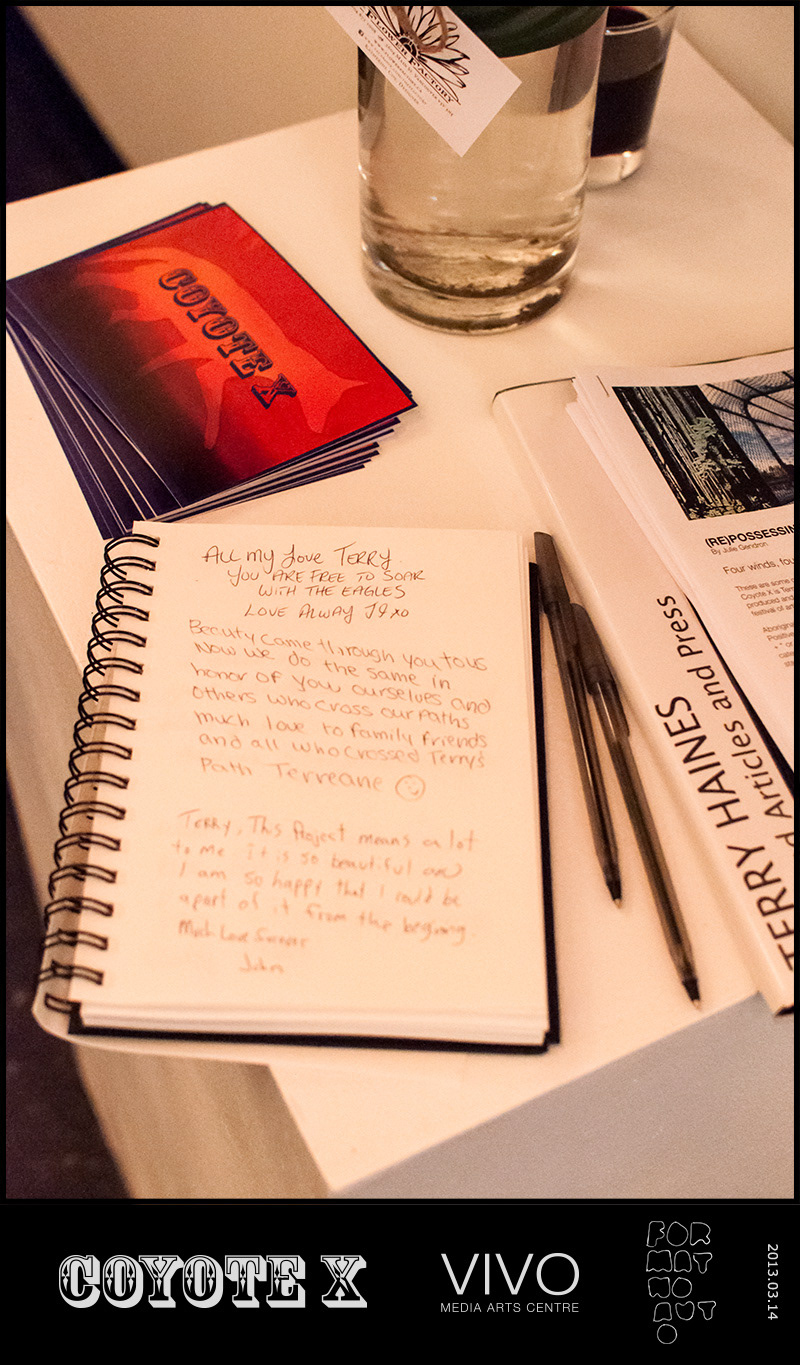 FLOWER FACTORY
COYOTE X
ALL MY LOVE TERRY
YOU ARE FREE TO SOAR
WITH THE EAGLES
LOVE ALWAY
Becuty came through you to us
Now we do the same in
honor of you ourselves and
others who cross our paths
much love to family friends
and all who crossed Terry's
Path Terreane
TERRY, This Project means a lot
to me It is so beautiful and
I am so happy that I could be
apart of it from the begining.
Much Love
John
(RE)POSSESSIN
By Julie Gendron
Four winds, fou
These are some o
Coyote X is Terr
produced and
festival of ar
Aboriginal
TERRY HAINES
d Articles and Press
COYOTE X
VIVO
MEDIA ARTS CENTRE
FOR
MAT
NO
AUT
O
2013.03.14